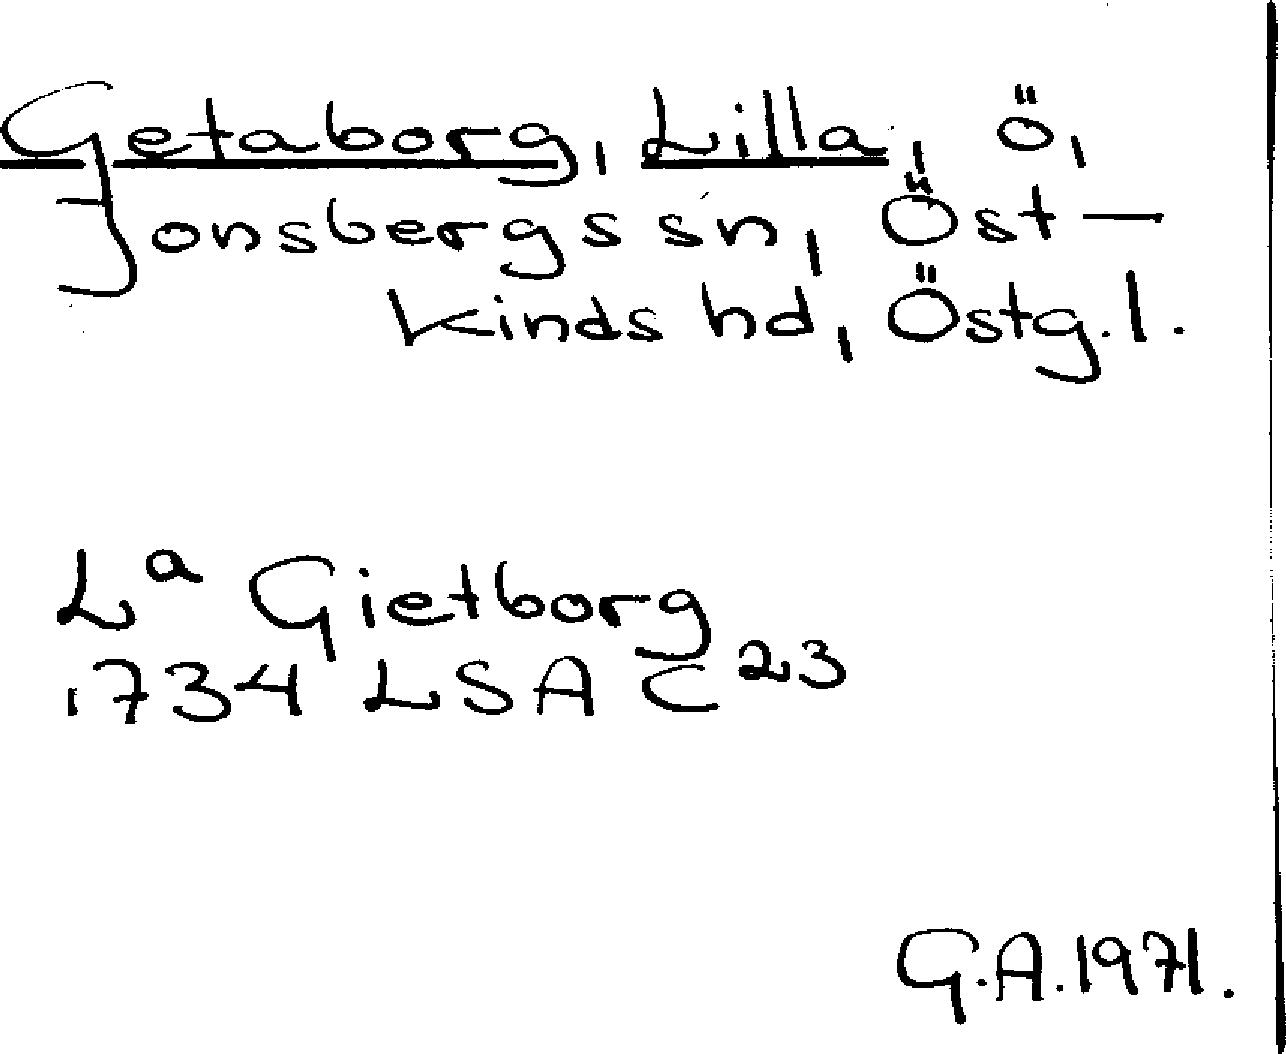 Getaborg, Lilla, ö,
Jonsbergs sn, Öst-
kinds hd, Östg.l.
La Gietborg
1734 LSA C23
G.A.1971.